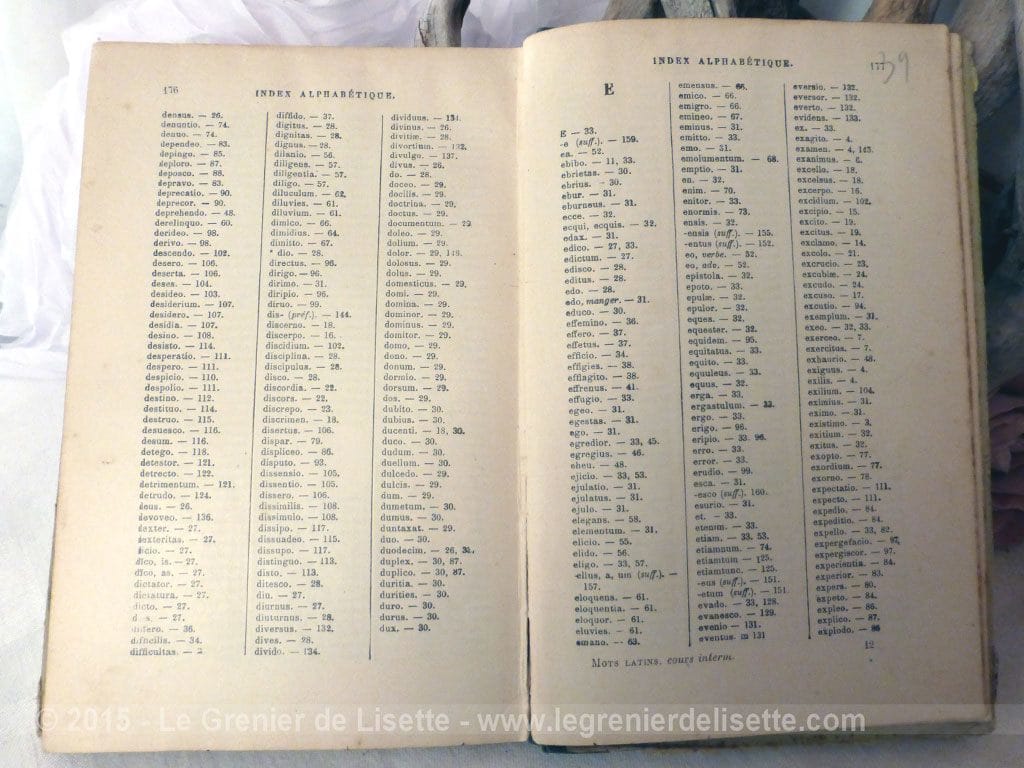 176
INDEX ALPHABÉTIQUE.
densus. — 26.
denuntio. — 74.
denuo. — 74.
dependeo. — 83.
depingo. — 85.
deploro. — 87.
deposco. — 88.
depravo. — 83.
deprecatio. — 90.
deprecor. — 90.
deprehendo. — 48.
derelinquo. — 60.
derideo. — 98.
derivo. — 98.
descendo. — 102.
desero. — 106.
deserta. — 106.
deses. — 104.
desideo. — 103.
desiderium. — 107.
desidero. — 107.
desidia. — 107.
desino. — 108.
desisto. — 114.
desperatio. — 111.
despero. — 111.
despicio. — 110.
despolio. — 111.
destino. — 112.
destituo. — 114.
destruo. — 115.
desuesco. — 116.
desum. — 116.
detego. — 118.
detestor. — 121.
detrecto. — 122.
detrimentum. — 121.
detrudo. — 124.
deus. — 26.
devoveo. — 136.
dexter. — 27.
dexteritas. — 27.
— 27.
dico, is. — 27.
dico, as. — 27.
dictator. — 27.
dictatura. — 27.
dicto. — 27.
— 27.
differo. — 36.
difficilis. — 34.
difficultas. —
diffido. — 37.
digitus. — 28.
dignitas. — 28.
dignus. — 28.
dilanio. — 56.
diligens. — 57.
diligentia. — 57.
diligo. — 57.
diluculum. — 62.
diluvies. — 61.
diluvium. — 61.
dimico. — 66.
dimidius. — 64.
dimitto. — 67.
* dio. — 28.
directus. — 96.
dirigo. — 96.
dirimo. — 31.
diripio. — 96.
diruo. — 99.
dis- (préf.). — 144.
discerno. — 18.
discerpo. — 16.
discidium. — 102.
disciplina. — 28.
discipulus. — 28.
disco. — 28.
discordia. — 22.
discors. — 22.
discrepo. — 23.
discrimen. — 18.
disertus. — 106.
dispar. — 79.
displiceo. — 86.
disputo. — 93.
dissensio. — 105.
dissentio. — 105.
dissero. — 106.
dissimilis. — 108.
dissimulo. — 108.
dissipo. — 117.
dissuadeo. — 115.
dissupo. — 117.
distinguo. — 113.
disto. — 113.
ditesco. — 28.
diu. — 27.
diurnus. — 27.
diuturnus. — 28.
diversus. — 132.
dives. — 28.
divido. — 134.
dividuus. — 134.
divinus. — 26.
divitiæ. — 28.
divortium. — 132.
divulgo. — 137.
divus. — 26.
do. — 28.
doceo. — 29.
docilis. — 29.
doctrina. — 29.
doctus. — 29.
documentum. — 29
doleo. — 29.
dolium. — 29.
dolor. — 29, 149.
dolosus. — 29.
dolus. — 29.
domesticus. — 29.
domi. — 29.
domina. — 29.
dominor. — 29.
dominus. — 29.
domitor. — 29.
domo. — 29.
domo. — 29.
donum. — 29.
dormio. — 29.
dorsum. — 29.
dos. — 29.
dubito. — 30.
dubius. — 30.
ducenti. — 18, 30.
duco. — 30.
dudum. — 30.
duellum. — 30.
dulcedo. — 29.
dulcis. — 29.
dum. — 29.
dumetum. — 30.
dumus. — 30.
duntaxat. — 29.
duo. — 30.
duodecim. — 26, 30.
duplex. — 30, 87.
duplico. — 30, 87.
duritia. — 30.
durities. — 30.
duro. — 30.
durus. — 30.
dux. — 30.
INDEX ALPHABÉTIQUE.
177
39
E
E — 33.
-e (suff.). — 159.
ea. — 52.
ebibo. — 11, 33.
ebrietas. — 30.
ebrius. — 30.
ebur. — 31.
eburneus. — 31.
ecce. — 32.
ecqui, ecquis. — 32.
edax. — 31.
edico. — 27, 33.
edictum. — 27.
edisco. — 28.
editus. — 28.
edo. — 28.
edo, manger. — 31.
educo. — 30.
effemino. — 36.
effero. — 37.
effetus. — 37.
efficio. — 34.
effigies. — 38.
efflagito. — 38.
effrenus. — 41.
effugio. — 33.
egeo. — 31.
egestas. — 31.
ego. — 31.
egredior. — 33, 45.
egregius. — 46.
eheu. — 48.
ejicio. — 33, 53.
ejulatio. — 31.
ejulatus. — 31.
ejulo. — 31.
elegans. — 58.
elementum. — 31.
elicio. — 55.
elido. — 56.
eligo. — 33, 57.
-ellus, a, um (suff.). —
157.
eloquens. — 61.
eloquentia. — 61.
eloquor. — 61.
eluvies. — 61.
emano. — 63.
emensus. — 66.
emico. — 66.
emigro. — 66.
emineo. — 67.
eminus. — 31.
emitto. — 33.
emo. — 31.
emolumentum. — 68.
emptio. — 31.
en. — 32.
enim. — 70.
enitor. — 33.
enormis. — 73.
ensis. — 32.
-ensis (suff.). — 155.
-entus (suff.). — 152.
eo, verbe. — 52.
eo, adv. — 52.
epistola. — 32.
epoto. — 33.
epulæ. — 32.
epulor. — 32.
eques. — 32.
equester. — 32.
equidem. — 95.
equitatus. — 33.
equito. — 33.
equuleus. — 33.
equus. — 32.
erga. — 33.
ergastulum. — 33.
ergo. — 33.
erigo. — 96.
eripio. — 33. 96.
erro. — 33.
error. — 33.
erudio. — 99.
esca. — 31.
-esco (suff.). 160.
esurio. — 31.
et. — 33.
etenim. — 33.
etiam. — 33, 53.
etiamnum. — 74.
etiamtum — 125.
etiamtunc. — 125.
-eus (suff.). — 151.
-etum (suff.). — 151
evado. — 33, 128.
evanesco. — 129.
evenio — 131.
eventus. 131
eversio. — 132.
eversor. — 132.
everto. — 132.
evidens. — 133.
ex. — 33.
exagito. — 4.
examen. — 4, 145.
exanimus. — 6.
excello. — 18.
excelsus. — 18.
excerpo. — 16.
excidium. — 102.
excipio. — 15.
excito. — 19.
excitus. — 19.
exclamo. — 14.
excolo. — 21.
excrucio. — 23.
excubiæ. — 24.
excudo. — 24.
excuso. — 17.
excutio. — 94.
exemplum. — 31.
exeo. — 32, 33.
exerceo. — 7.
exercitus. — 7.
exhaurio. — 48.
exiguus. — 4.
exilis. — 4.
exilium. — 104.
eximius. — 31.
eximo. — 31.
existimo. — 3.
exitium. — 32.
exitus. — 32.
exopto. — 77.
exordium. — 77.
exorno. — 78.
expectatio. — 111.
expecto. — 111.
expedio. — 84.
expeditio. — 84.
expello. — 33, 82.
expergefacio. — 97.
expergiscor. — 97.
experientia. — 84.
experior. — 83.
expers. — 80.
expeto. — 84.
expleo. — 86.
explico. — 87.
explodo. — 86
MOTS LATINS, cours interm.
12
© 2015 - Le Grenier de Lisette - www.legrenierdelisette.com